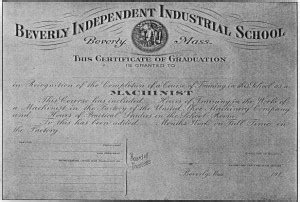 BEVERLY INDEPENDENT INDUSTRIAL SCHOOL
Beverly, Mass.
THIS CERTIFICATE OF GRADUATION
IS GRANTED TO
in Recognition of the Completion of a Course of Training in this School as a
MACHINIST
This Course has included Hours of Training in the Work of
a Machinist in the Factory of the United Shoe Machinery Company
and Hours of Practical Studies in the School Room.
To this has been added Months Work on Full Time in
the Factory.
Board of
Trustees
Beverly, Mass. 191